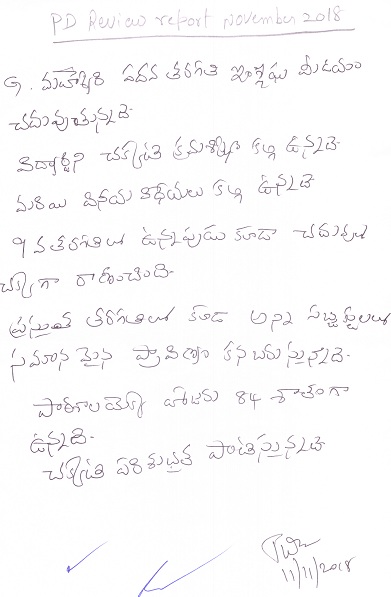 PD Review report november 2018
G. మహేశ్వరి పదవ తరగతి ఇంగ్లీషు మీడియం
చదువుతున్నది
విద్యార్థిని చక్కటి క్రమశిక్షణ కల్గి ఉన్నది
మరియు వినయ విధేయలు కల్గి ఉన్నది
9 వ తరగతిలో ఉన్నపుడు కూడా చదువులో
చక్కగా రాణించింది.
ప్రస్తుత తరగతిలో కూడా అన్ని సబ్జెక్టులలో
సమానమైన ప్రావిణ్యం కనబరుస్తున్నది.
పాఠశాలయొక్క హాజరు 84 శాతంగా
ఉన్నది.
చక్కటి పరిశుభ్రత పాటిస్తున్నది
11/11/2018